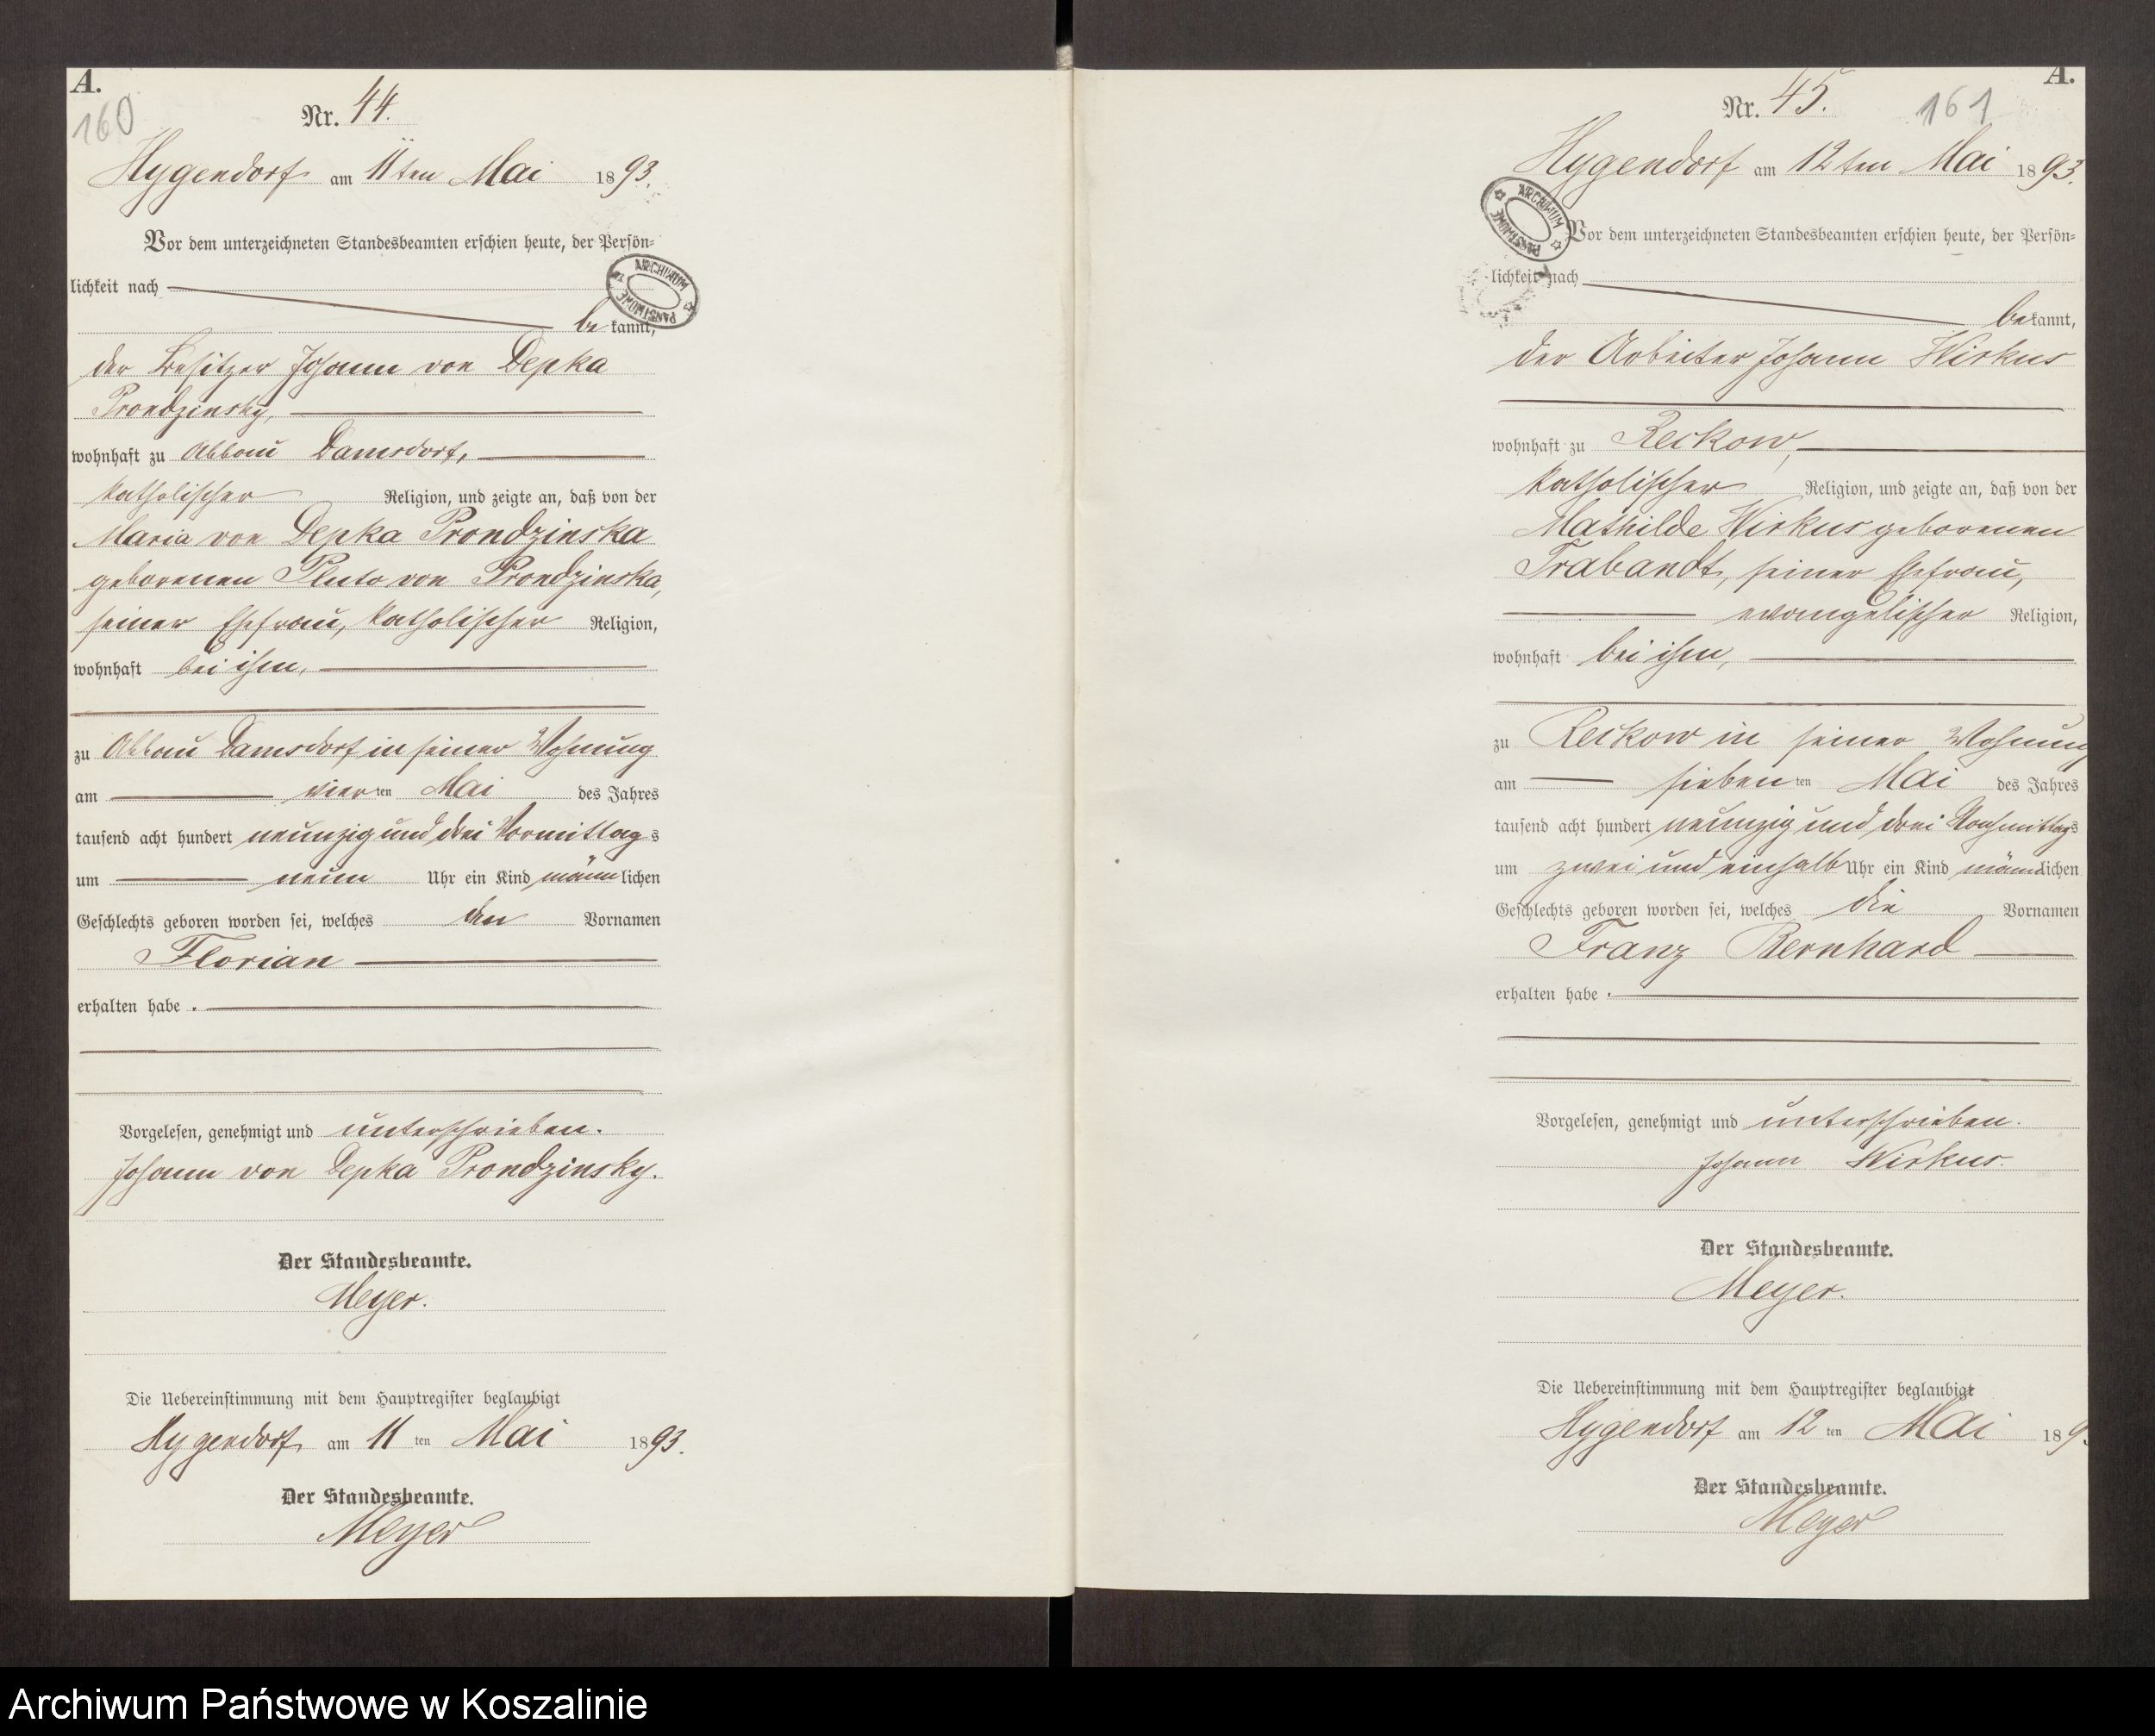 A.
160
Nr. 44.
Hygendorf am 11ten Mai 1893.
Vor dem unterzeichneten Standesbeamten erschien heute, der Persön=
lichkeit nach
ARCHIWUM PAŃSTWOWE
bekannt,
der Besitzer Johann von Depka
Prondzinsky,
wohnhaft zu Abbau Damsdorf,
katholischer Religion, und zeigte an, daß von der
Maria von Depka Prondzinska
geborenen Pluto von Prondzinska,
seiner Ehefrau, katholischer Religion,
wohnhaft bei ihm,
zu Abbau Damsdorf in seiner Wohnung
am vierten Mai des Jahres
tausend acht hundert neunzig und drei Vormittags
um neun Uhr ein Kind männlichen
Geschlechts geboren worden sei, welches den Vornamen
Florian
erhalten habe.
Vorgelesen, genehmigt und unterschrieben.
Johann von Depka Prondzinsky.
Der Standesbeamte.
Meyer.
Die Uebereinstimmung mit dem Hauptregister beglaubigt
Hygendorf am 11 ten Mai 1893.
Der Standesbeamte.
Meyer
A.
Nr. 45.
161
Hygendorf am 12ten Mai 1893.
ARCHIWUM PAŃSTWOWE
Vor dem unterzeichneten Standesbeamten erschien heute, der Persön=
lichkeit nach
bekannt,
der Arbeiter Johann Wirkus
wohnhaft zu Reckow,
katholischer Religion, und zeigte an, daß von der
Mathilde Wirkus geborenen
Trabandt, seiner Ehefrau,
evangelischer Religion,
wohnhaft bei ihm,
zu Reckow in seiner Wohnung
am siebenten Mai des Jahres
tausend acht hundert neunzig und drei Nachmittags
um zwei und einhalb Uhr ein Kind männlichen
Geschlechts geboren worden sei, welches die Vornamen
Franz Bernhard
erhalten habe.
Vorgelesen, genehmigt und unterschrieben.
Johann Wirkus.
Der Standesbeamte.
Meyer.
Die Uebereinstimmung mit dem Hauptregister beglaubigt
Hygendorf am 12 ten Mai 189
Der Standesbeamte.
Meyer
Archiwum Państwowe w Koszalinie